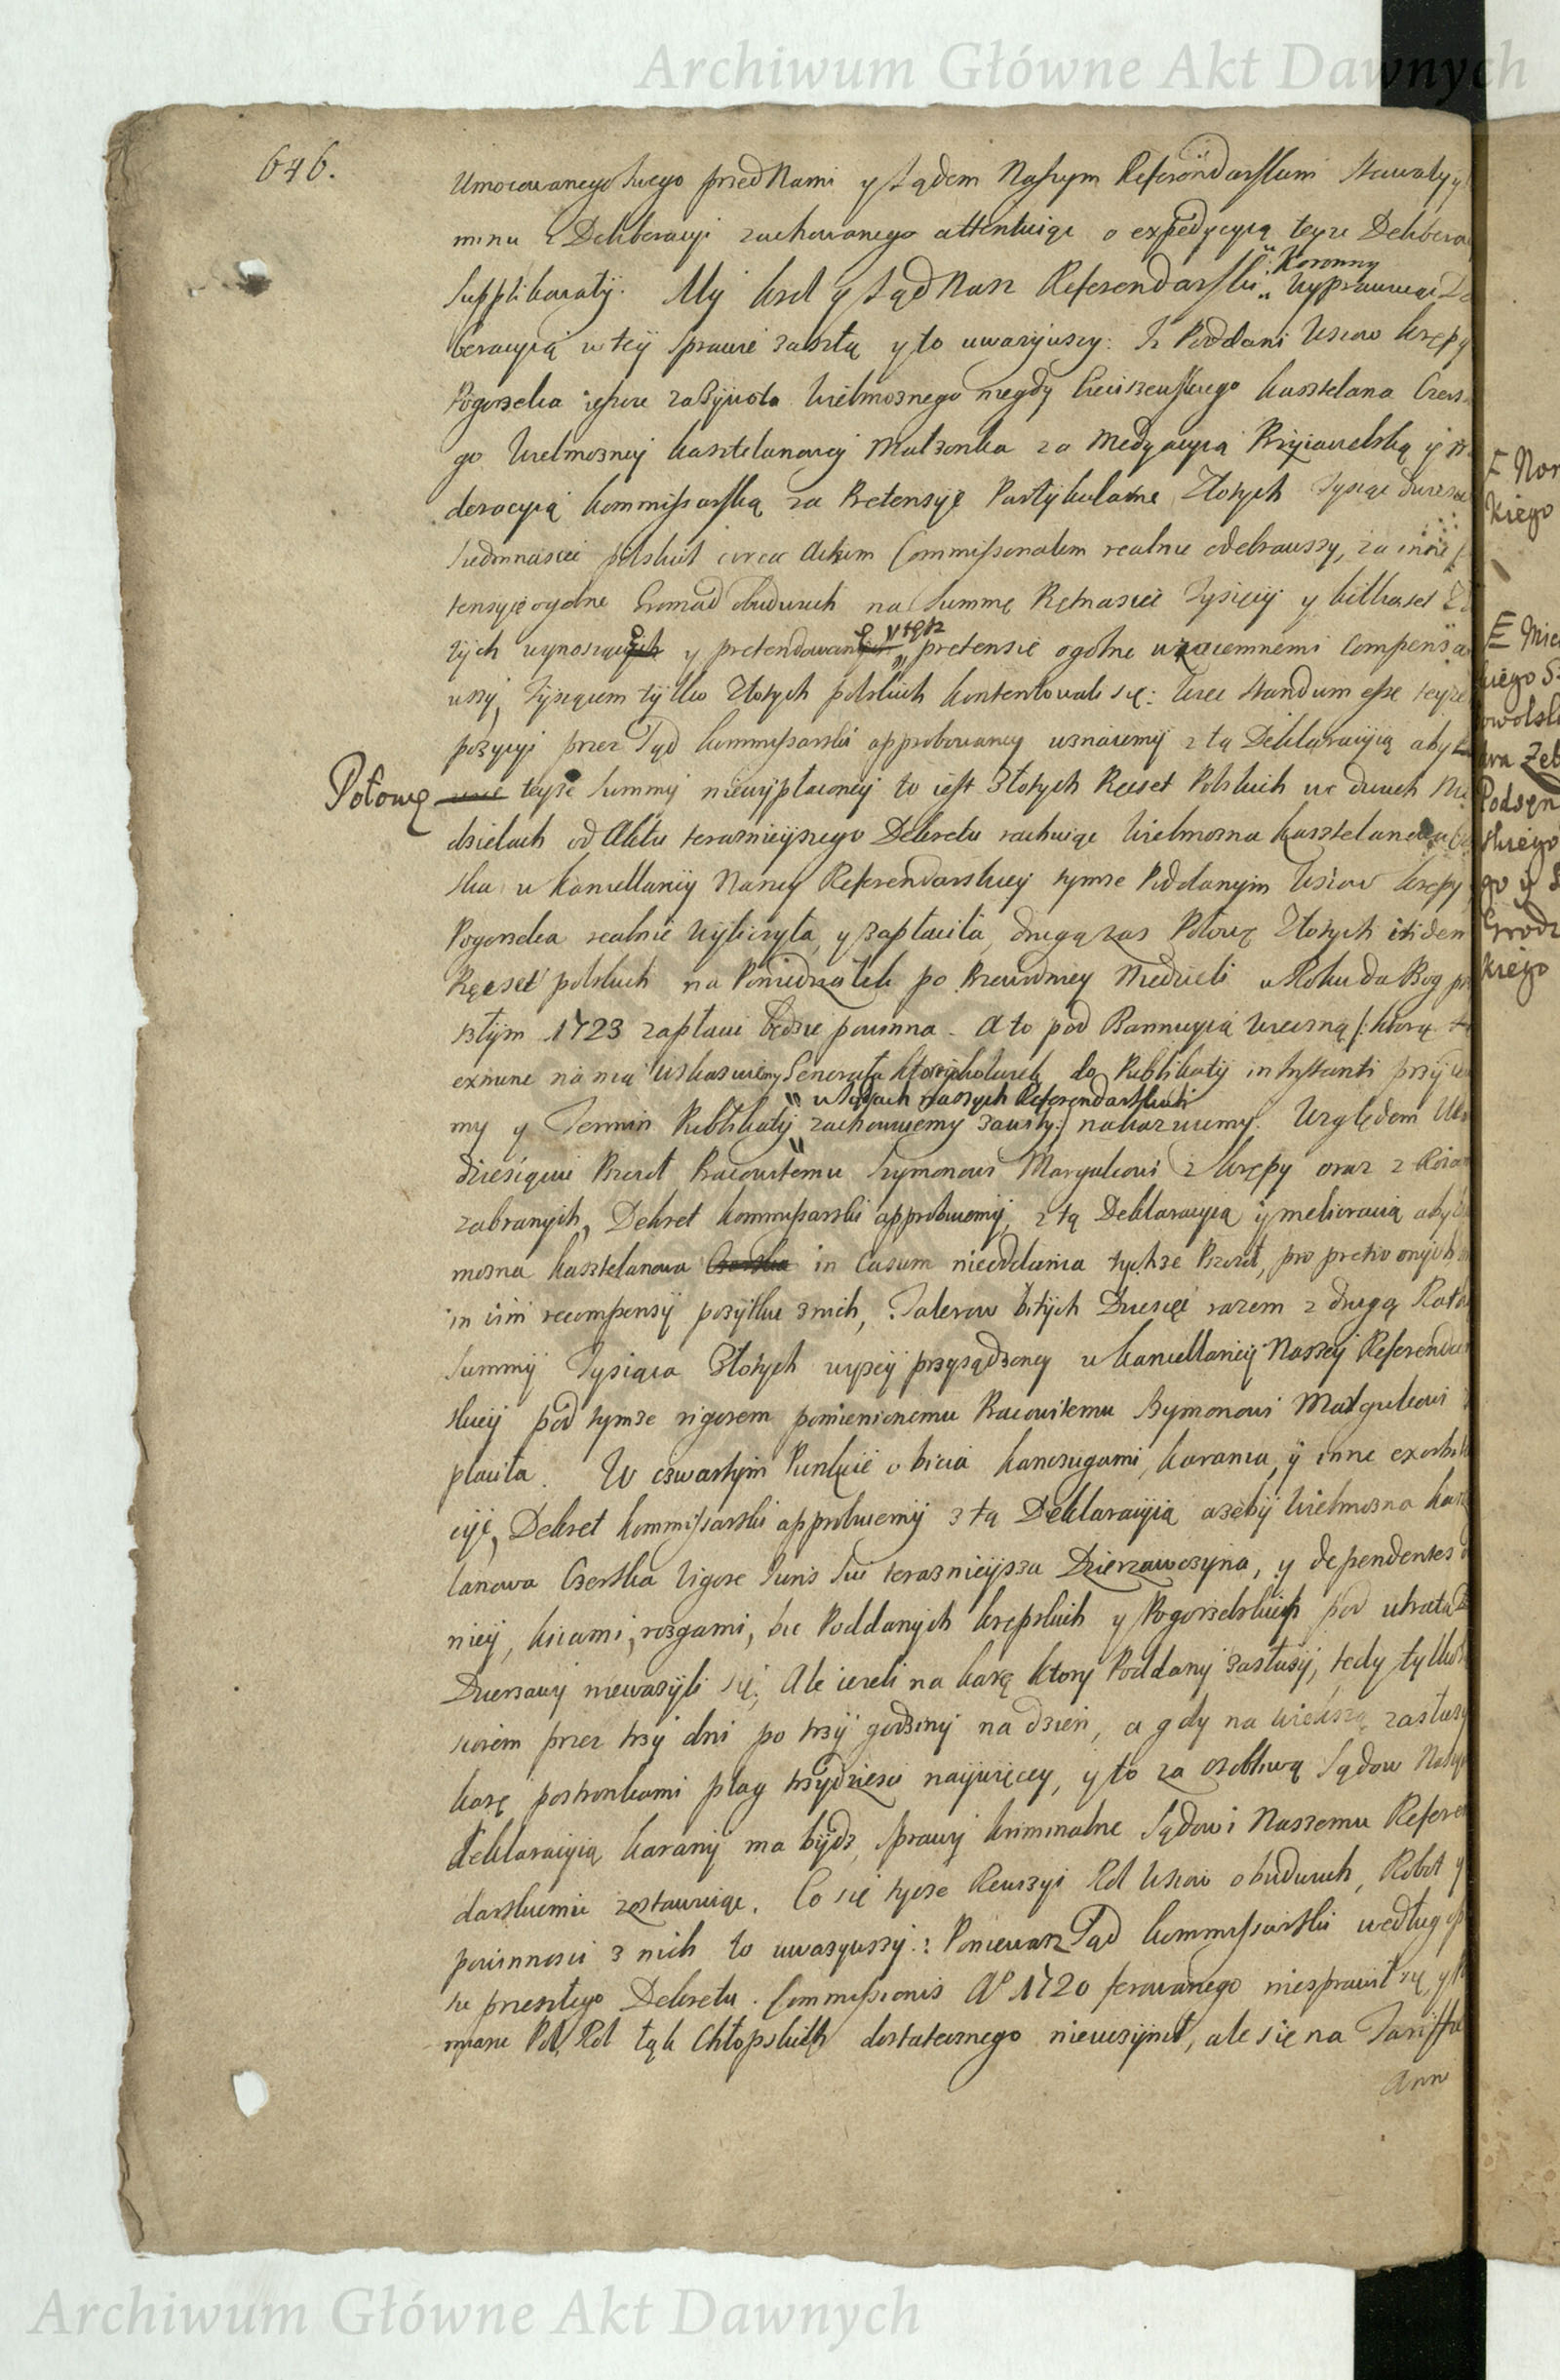 Archiwum Główne Akt Dawnych
646.
Umocowanego swego przed Nami y Sądem Naszym Referendarskim stawały y
minu z Deliberacyi zachowanego attentuiąc o expedycyią teyze Delibera
supplikowały. My Krol y Sąd Nasz Referendarski Koronny Wyprawuiąc De
beracyią w tey sprawie zaszłą y to uwazywszy: Iz Poddani Wsiow Krępy
Pogorzelca ieszcze za zywota Wielmoznego niegdy Cieciszewskiego Kasztelana Czers
go Wielmozney Kasztelanowey Małzonka za Medyacyią Przyiacielską y
deracyią Kommissarską za Pretensye Partykularne Złotych Tysiąc dwiescie
siedmnascie polskich circa Actum Commissionalem realnie odebrawszy, za inne
tensyie ogolne Gromad obudwuch na Summę Pętnascie Tysięcy y kilkaset Zł
tych wynoszące y pretendowane, y tęz pretensie ogolne wzaiemnemi compensa
wszy, Tysiącem tylko Złotych polskich kontentowali się: Wiec standum esse teyze
pozycyi przez Sąd Kommissarski approbowaney uznaiemy z tą Deklaracyią aby
Połowę teyze Summy niewypłaconey to iest Złotych Pięcset Polskich we dwuch Nie
dzielach od Aktu teraznieyszego Dekretu rachuiąc Wielmozna Kasztelanowa Cze
ska w Kancellaryi Naszey Referendarskiey tymze Poddanym Wsiow Krępy
Pogorzelca realnie Wyliczyła, y zapłaciła, drugą zas Połowę Złotych itidem
Pięcset polskich na Poniedziałek po Przewodniey Niedzieli w Roku da Bog
szłym 1723 zapłaci będzie powinna. A to pod Bannicyią Wieczną /: ktorą
exnunc na nią wskazuiemy Generała ktoregokolwiek do Publikaty instanti
my y Termin Publikaty w Sądach naszych Referendarskich zachowuiemy zawity:/ nakazuiemy. Względem
dziesiąciu Pszczoł Pracowitemu Szymonowi Margulcowi z Krępy oraz z
zabranych, Dekret Kommissarski approbuiemy, z tą Deklaracyią y melioracią aby
mozna Kasztelanowa in Casum nieoddania tychze Pszczoł, pro pretio onychze
in vim recompensy pozytku z nich, Talerow bitych Dziesięć razem z drugą Ratą
Summy Tysiąca Złotych wyzey przysądzoney w Kancellaryi Naszey Referendar
skiey pod tymze rigorem pomienionemu Pracowitemu Szymonowi Malgulcowi
płaciła. W czwartym Punkcie o bicia kanczugami, karania, y inne exorbi
cye, Dekret Kommissarski approbuiemy z tą Deklaracyią azeby Wielmozna Kasz
lanowa Czerska Vigore Juris sui teraznieysza Dzierzawczyna, y dependentes
niey, kiiami, rozgami, bic Poddanych Krępskich y Pogorzelskich pod utratą
Dzierzawy niewazyli się; Ale iezeli na karę ktory Poddany zasłuzy, tedy tylko
siorem przez trzy dni po trzy godziny na dzien, a gdy na większą zasłuzy
karę postronkami plag trzydziesci naywięcey, y to za osobliwą Sądow Nasz
deklaracyią karany ma bydz, sprawy kriminalne Sądowi Naszemu Referen
darskiemu zostawuiąc. Co się tycze Rewizyi Rol Wsiow obudwuch, Robot y
powinnosci z nich to uwazywszy: Poniewasz Sąd Kommissarski według
su przeszłego Dekretu Commissionis Aº 1720 ferowanego niesprawił się, y
miaru Pol, Rol łąk Chłopskich dostatecznego nieuczynił, ale się na Taryffie
Ann
Nor
kiego
Mie
kiego S
owolsk
Zeb
Podsęn
skiego
go y S
Grodz
kiego
Archiwum Główne Akt Dawnych